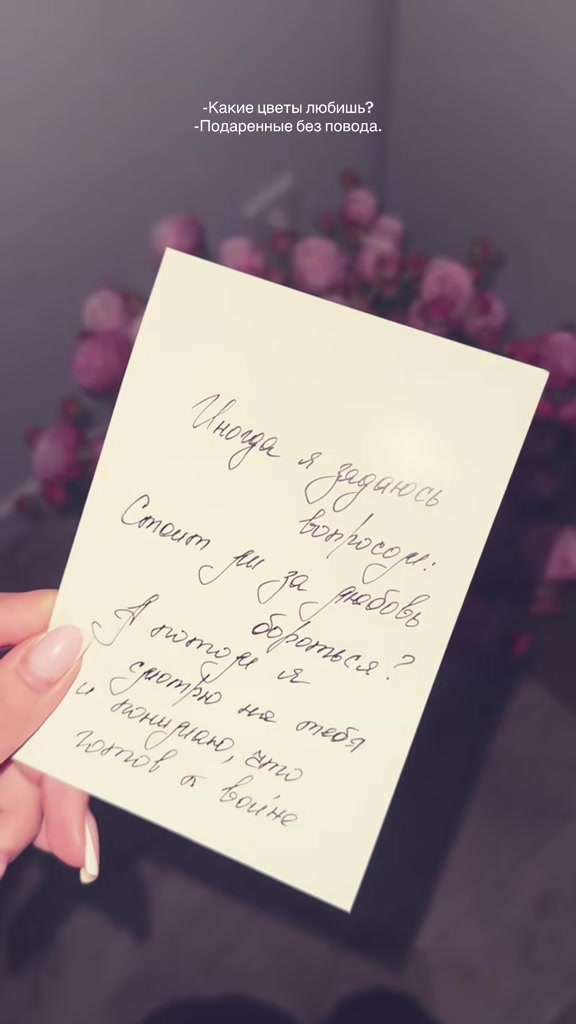 -Какие цветы любишь?
-Подаренные без повода.
Иногда я задаюсь
вопросом:
Стоит ли за любовь
бороться?
А потом я
смотрю на тебя
и понимаю, что
готов к войне